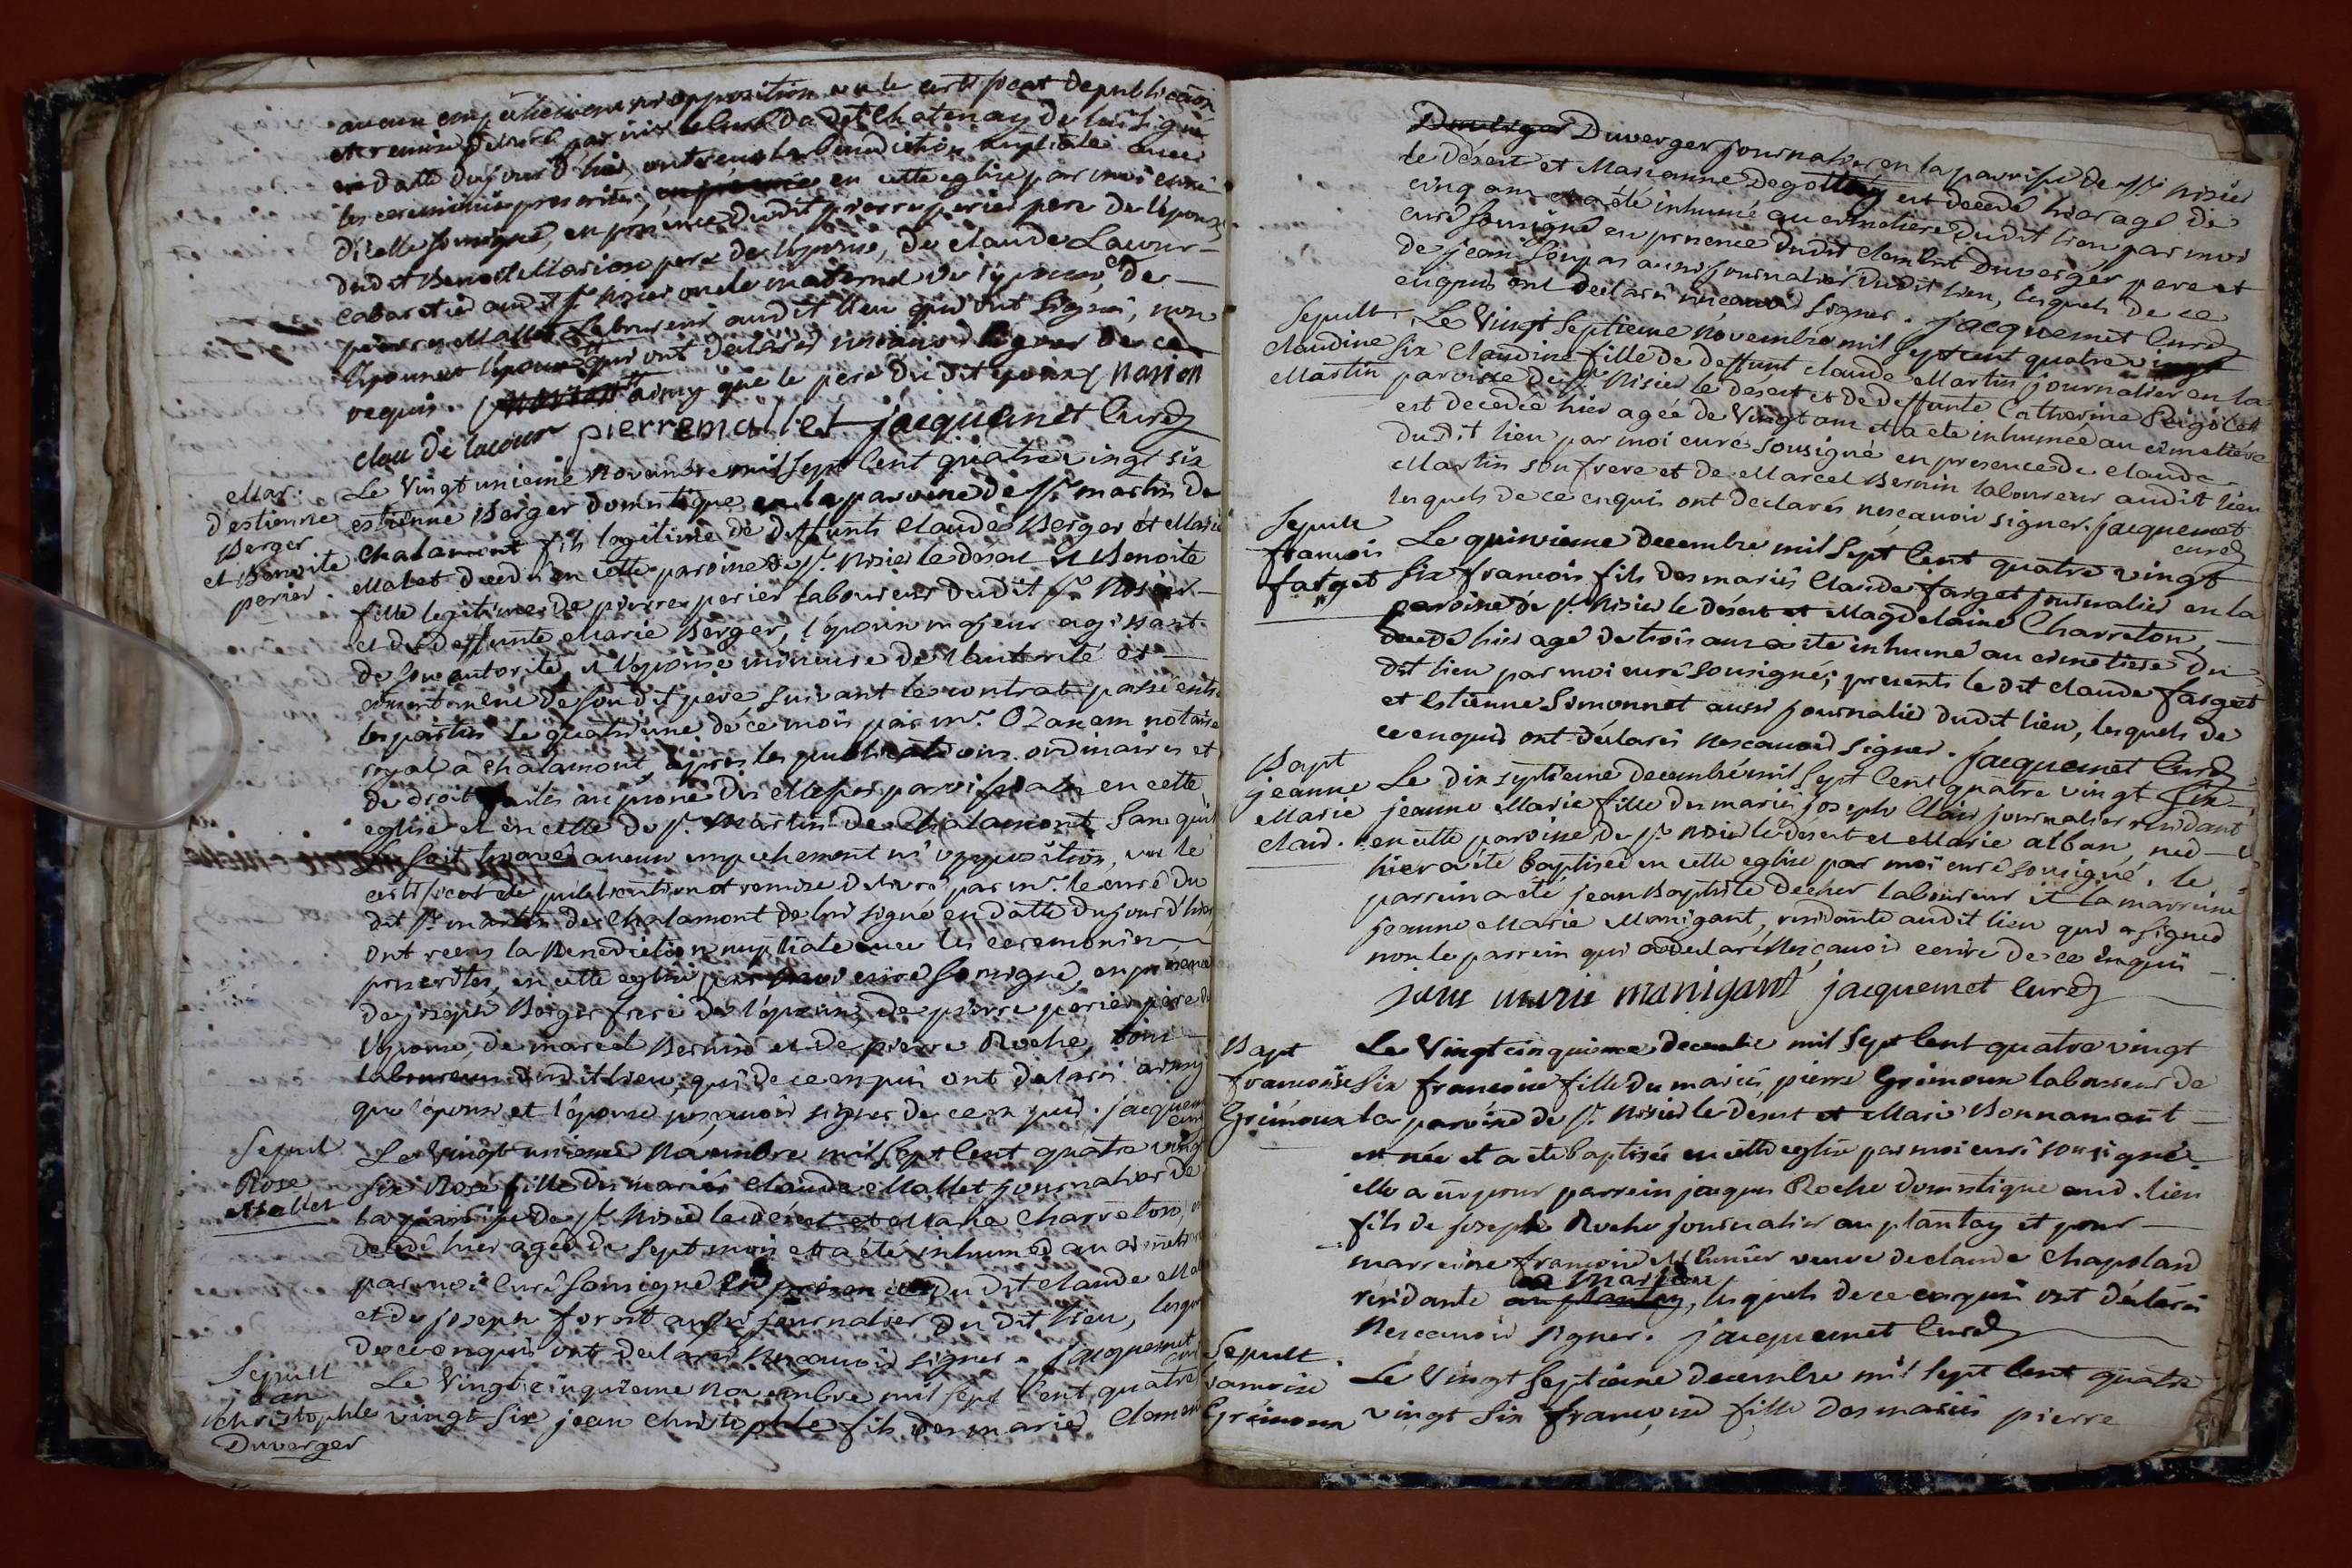 aucun empêchement ni opposition vu le certificat de publication
et remise delivré par mr le curé dudit Chatenay de lui signé
en datte du jour d'hier, ont reçus la benediction nuptiale avec
les ceremonies prescrites, en cette eglise par moi curé
d'icelle sousigné, en présence dudit pierre perier pere de l'épouse
dudit Benoit Marion pere de l'épouse, de claude Lacour
cabaretier audit st Nisier oncle maternel de l'épouse, de
pierre Mallet Laboureur audit lieu qui ont signé, non
l'épouse et l'époux qui ont declarés nescavoir signer de ce
requis. army que le pere dudit époux Marion
clau de lacour pierre mallet jacquemet Curé
Mar. Le Vingt unieme Novembre mil Sept Cent quatre vingt six
d'estienne estienne Berger domestique en la paroisse de st. martin de
Berger chalamont fils legitime de deffunts Claude Berger et Marie
et Benoite Mallet decedés en cette paroisse de st. Nisier le desert et Benoite
perier. fille legitime de pierre perier laboureur dudit st. Nisier
et de deffunte Marie Berger, l'époux majeur agissant
de son autorité, et l'épouse mineure de l'autorité et
consentement de sondit pere suivant le contrat passé entre
les parties le quatrieme de ce mois par mr. Ozanam notaire
royal à chalamont, après les publications ordinaires et
de droit faites au prone des messes paroissiales en cette
eglise et en celle de st. Martin de Chalamont Sans qu'il
se soit trouvé aucun empechement ni opposition, vu le
certificat de publication et remise delivré par mr. le curé du
dit st. martin de Chalamont de lui signé en datte du jour d'hier,
ont reçus la Benediction nuptiale avec les ceremonies
prescrites, en cette eglise par moi curé sousigné, en presence
de joseph Berger frere de l'époux, de pierre perier pere de
l'épouse, de marcel Bernin et de pierre Roche, tous
laboureurs dudit lieu, qui de ce enquis ont declarés armij
que l'époux et l'épouse nescavoir signer de ce enquis. jacquemet
curé
Sepul Le Vingt unieme Novembre mil Sept Cent quatre vingt
Rose Six Rose fille des mariés Claude Mallet journalier de
Mallet la paroisse de st. Nisier le désert et Marie Charreton, est
decedé hier agée de sept mois et a été inhumée au cimetiere
par moi Curé Sousigné en presence dudit claude Mallet
et de joseph forest aussi journalier dudit lieu, lesquels
de ce enquis ont declarés Nescavoir signer. jacquemet
curé
Sepult Le Vingt cinquieme Novembre mil sept Cent quatre
jean
Christophle vingt six jean christophle fils des mariés Clement
Duverger
Duverger Duverger journalier en la paroisse de st. Nisier
le Désert et Marianne Degottey est decedé hier agé de
cinq ans et a été inhumé au cimetiere dudit lieu par moi
curé sousigné en presence dudit Clement Duverger pere et
de jean Soupas aussi journalier dudit lieu, lesquels de ce
enquis ont declarés nescavoir signer. jacquemet Curé
Sepult. Le Vingt Septieme Novembre mil sept cent quatre vingt
Claudine six Claudine fille de deffunt claude Martin journalier en la
Martin paroisse de st Nisier le desert et de deffunte Catherine
est decedée hier agée de Vingt ans et a ete inhumée au cimetiére
dudit lieu par moi curé sousigné en presence de claude
Martin son frere et de Marcel Bernin laboureur audit lieu
lesquels de ce enquis ont declarés nescavoir signer. jacquemet
curé
Sepult Le quinzieme decembre mil Sept Cent quatre vingt
francois Six francois fils des mariés Claude farget journalier en la
farget paroisse de st. Nisier le désert et Magdelaine Charreton,
decedé hier agé de trois ans a ete inhumé au cimetiere du
dit lieu par moi curé sousigné; presents le dit claude farget
et Estienne Simonnet aussi journalier dudit lieu, lesquels de
ce enquis ont declarés Nescavoir signer. jacquemet Curé
Bapt Le dix septieme decembre mil Sept Cent quatre vingt Six
jeanne jeanne Marie fille des mariés joseph Clair journalier residant
Marie en cette paroisse de st. Nisier le désert et Marie alban, née
clair. hier a ete baptisée en cette eglise par moi curé sousigné, le
parrein a eté jean Baptiste Decher laboureur et la marreine
jeanne Marie Manigant, residante audit lieu qui a signé
non le parrein qui a declaré Nescavoir ecrire de ce Enquis
jane marie manigant jacquemet Curé
Bapt Le Vingt cinquieme decembre mil Sept Cent quatre vingt
francoise Six francoise fille des mariés pierre Grimoux laboureur de
Grimoux la paroisse de st. Nisier le désert et Marie Bonnamont
est née et a ete baptisée en cette eglise par moi curé sousigné.
elle a eu pour parrein jacques Roche domestique aud. lieu
fils de joseph Roche journalier au plantay et pour
marreine francoise veuve de claude Chapoland
a Marlieu
residante au plantay, lesquels de ce enquis ont déclarés
Nescavoir signer. jacquemet Curé
Sepult. Le Vingt Septieme decembre mil Sept Cent quatre
francoise
Grimoux vingt Six françoise fille des mariés pierre